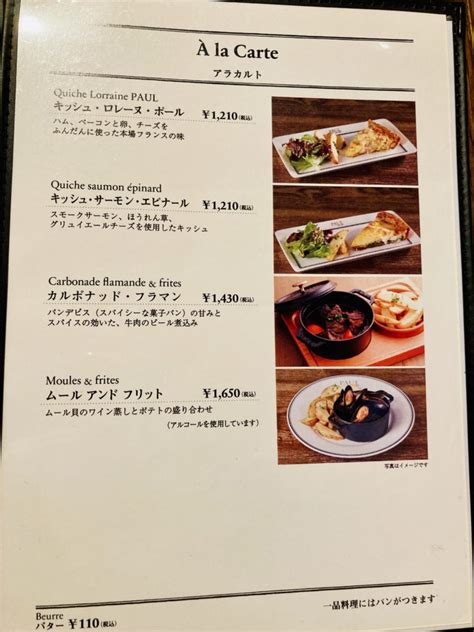 À la Carte
アラカルト
Quiche Lorraine PAUL
キッシュ・ロレーヌ・ポール ¥1,210(税込)
ハム、ベーコンと卵、チーズを
ふんだんに使った本場フランスの味
Quiche saumon épinard
キッシュ・サーモン・エピナール ¥1,210(税込)
スモークサーモン、ほうれん草、
グリュイエールチーズを使用したキッシュ
Carbonade flamande & frites
カルボナッド・フラマン ¥1,430(税込)
パンデピス（スパイシーな菓子パン）の甘みと
スパイスの効いた、牛肉のビール煮込み
Moules & frites
ムール アンド フリット ¥1,650(税込)
ムール貝のワイン蒸しとポテトの盛り合わせ
（アルコールを使用しています）
PAUL
写真はイメージです
一品料理にはパンがつきます
Beurre
バター ¥110(税込)